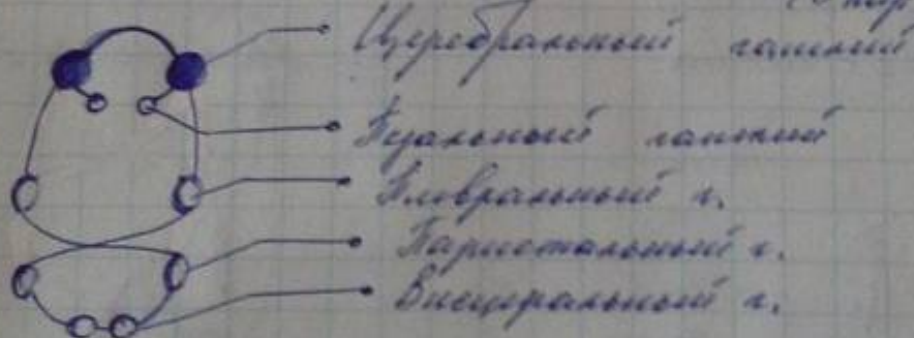 Церебральный ганглий
Педальный ганглий
Плевральный г.
Париетальный г.
Висцеральный г.